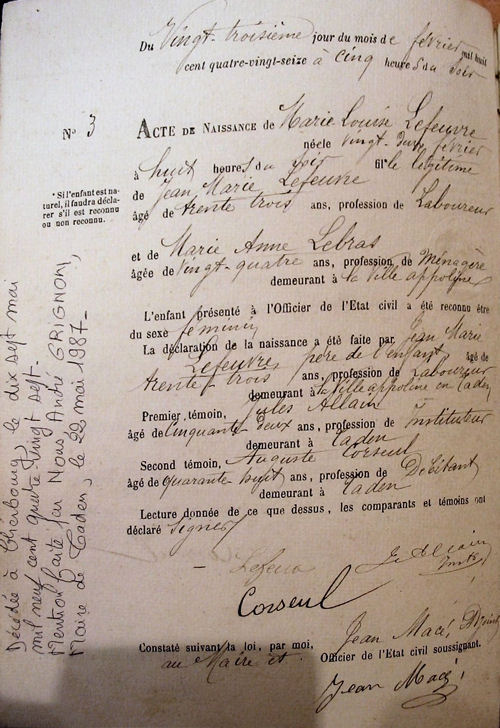 Du Vingt-troisième jour du mois de février mil huit
cent quatre-vingt-seize à cinq heures du soir
N° 3
ACTE DE NAISSANCE de Marie Louise Lefeuvre
née le vingt-deux février
à huit heures du soir fille légitime
* Si l'enfant est na-
turel, il faudra décla-
rer s'il est reconnu
ou non reconnu.
de Jean Marie Lefeuvre
âgé de trente trois ans, profession de Laboureur
et de Marie Anne Lebras
âgée de vingt-quatre ans, profession de Ménagère
demeurant à la Ville appoline
L'enfant présenté à l'Officier de l'Etat civil a été reconnu être
du sexe féminin
La déclaration de la naissance a été faite par Jean Marie
Lefeuvre, père de l'enfant, âgé de
trente-trois ans, profession de Laboureur
demeurant à la Ville appoline en Caden
Premier témoin, Jules Allain
âgé de Cinquante-deux ans, profession de instituteur
demeurant à Caden
Second témoin, Auguste Corseul
âgé de quarante huit ans, profession de Débitant
demeurant à Caden
Lecture donnée de ce que dessus, les comparants et témoins ont
déclaré signer
Lefeuvre
J. Allain
Corseul
Jean Macé,
Constaté suivant la loi, par moi,
au Maire et Officier de l'Etat civil soussigné.
Jean Macé
Décédée à Cherbourg, le dix sept mai
mil neuf cent quatre vingt sept.
Mention faite par Nous, André GRIGNON,
Maire de Caden, le 22 mai 1987.